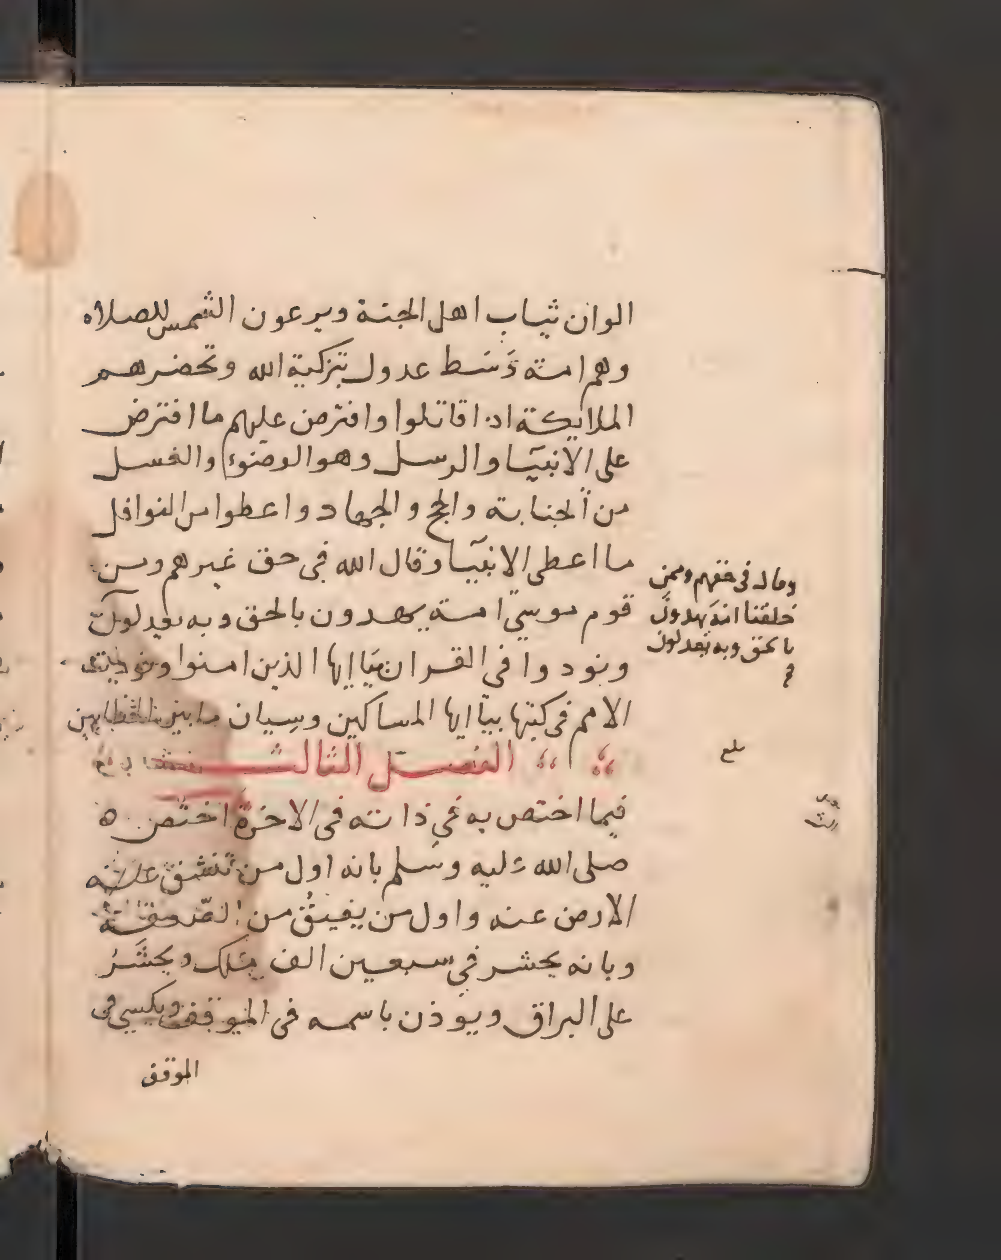 الوان ثياب اهل الجنة ويرعون الشمس للصلاه
وهم امته وسط عدول بتزكية الله وتحضرهم
الملايكة اذا قاتلوا وافترض عليهم ما افترض
على الانبيا والرسل وهو الوضوء والغسل
من الجنابة والحج والجهاد واعطوا من النوافل
ما اعطى الانبيا وقال الله في حق غيرهم ومن
قوم موسى امة يهدون بالحق وبه يعدلون
ونودوا في القران يا ايها الذين امنوا ونوديت
الامم في كتبها بيا ايها المساكين وسيان ما بين الخطابين
الفصل الثالث
فيما اختص به في ذاته في الاخرة اختص
صلى الله عليه وسلم بانه اول من تنشق
الارض عنه واول من يفيق من الصعقة
وبانه يحشر في سبعين الف ملك ويحشر
على البراق ويوذن باسمه في الموقف ويكسى في
الموقف
وقال في حقهم وممن
خلقنا امة يهدون
بالحق وبه يعدلون